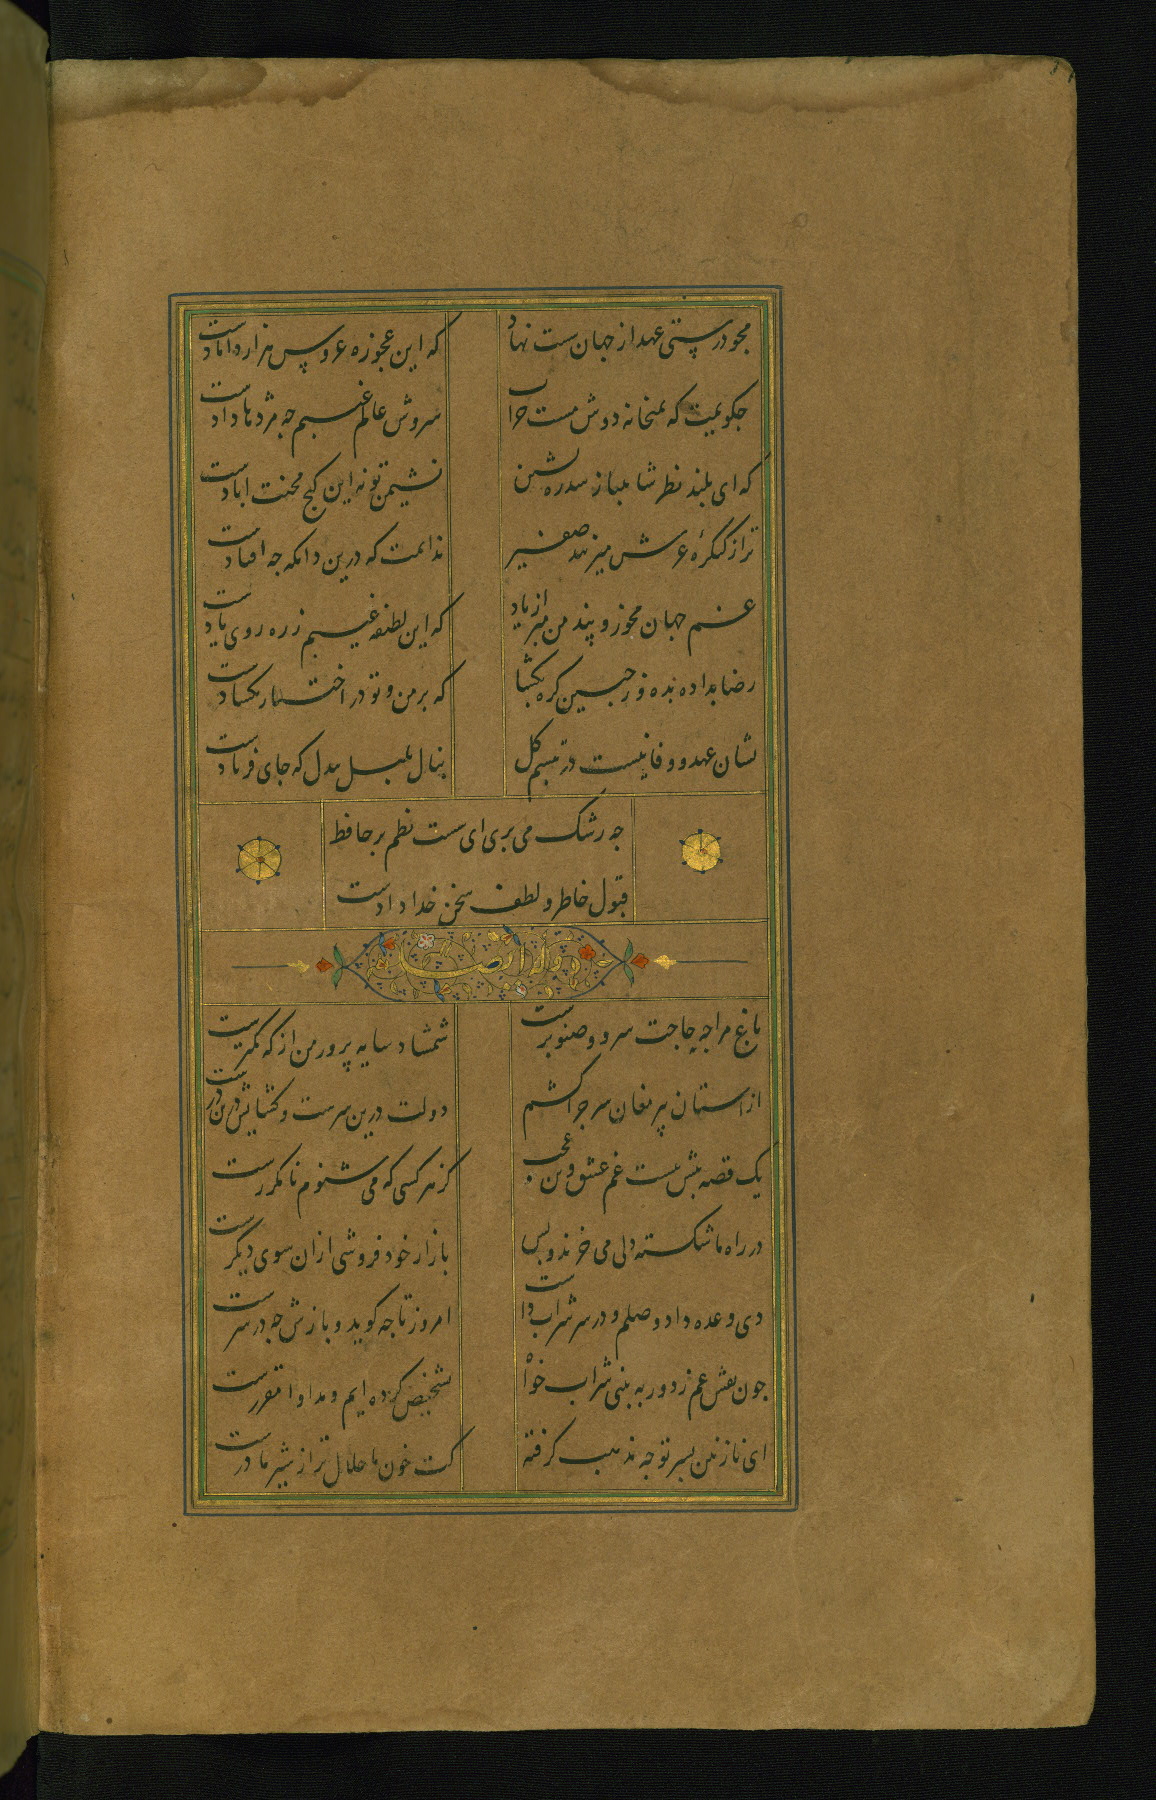 مجو درستی عهد از جهان سست نهاد
که این عجوزه عروس هزار دامادست
چکویمت که بمیخانه دوش مست خراب
سروش عالم غیبم چه مژدها دادست
که ای بلند نظر شاهباز سدره نشین
نشیمن تو نه این کنج محنت ابادست
ترا ز کنکرهٔ عرش میزنند صفیر
ندانمت که درین دامکه چه افتادست
غم جهان مخور و پند من مبر از یاد
که این لطیفه غیبم ز ره روی یادست
رضا بداده بده وز جبین کره بکشا
که بر من و تو در اختیار نکشادست
نشان عهد و وفا نیست در تبسم کل
بنال بلبل بیدل که جای فریادست
چه رشک می بری ای سست نظم بر حافظ
قبول خاطر و لطف سخن خدادادست
وله ایضا
باغ مرا چه حاجت سرو و صنوبرست
شمشاد سایه پرور من از که کمترست
از استان پیر مغان سر چرا کشم
دولت درین سرست و کشایش درین درست
یک قصه بیش نیست غم عشق وین عجب
کز هر کسی که می شنوم نامکررست
در راه ما شکسته دلی می خرند و بس
بازار خود فروشی ازان سوی دیگرست
دی وعده داد وصلم و در سر شراب داشت
امروز تا چه کوید و بازش چه در سرست
چون نقش غم ز دور به بینی شراب خواه
تشخیص کرده ایم و مداوا مقررست
ای نازنین پسر تو چه مذهب کرفتهٔ
کت خون ما حلال تر از شیر مادرست